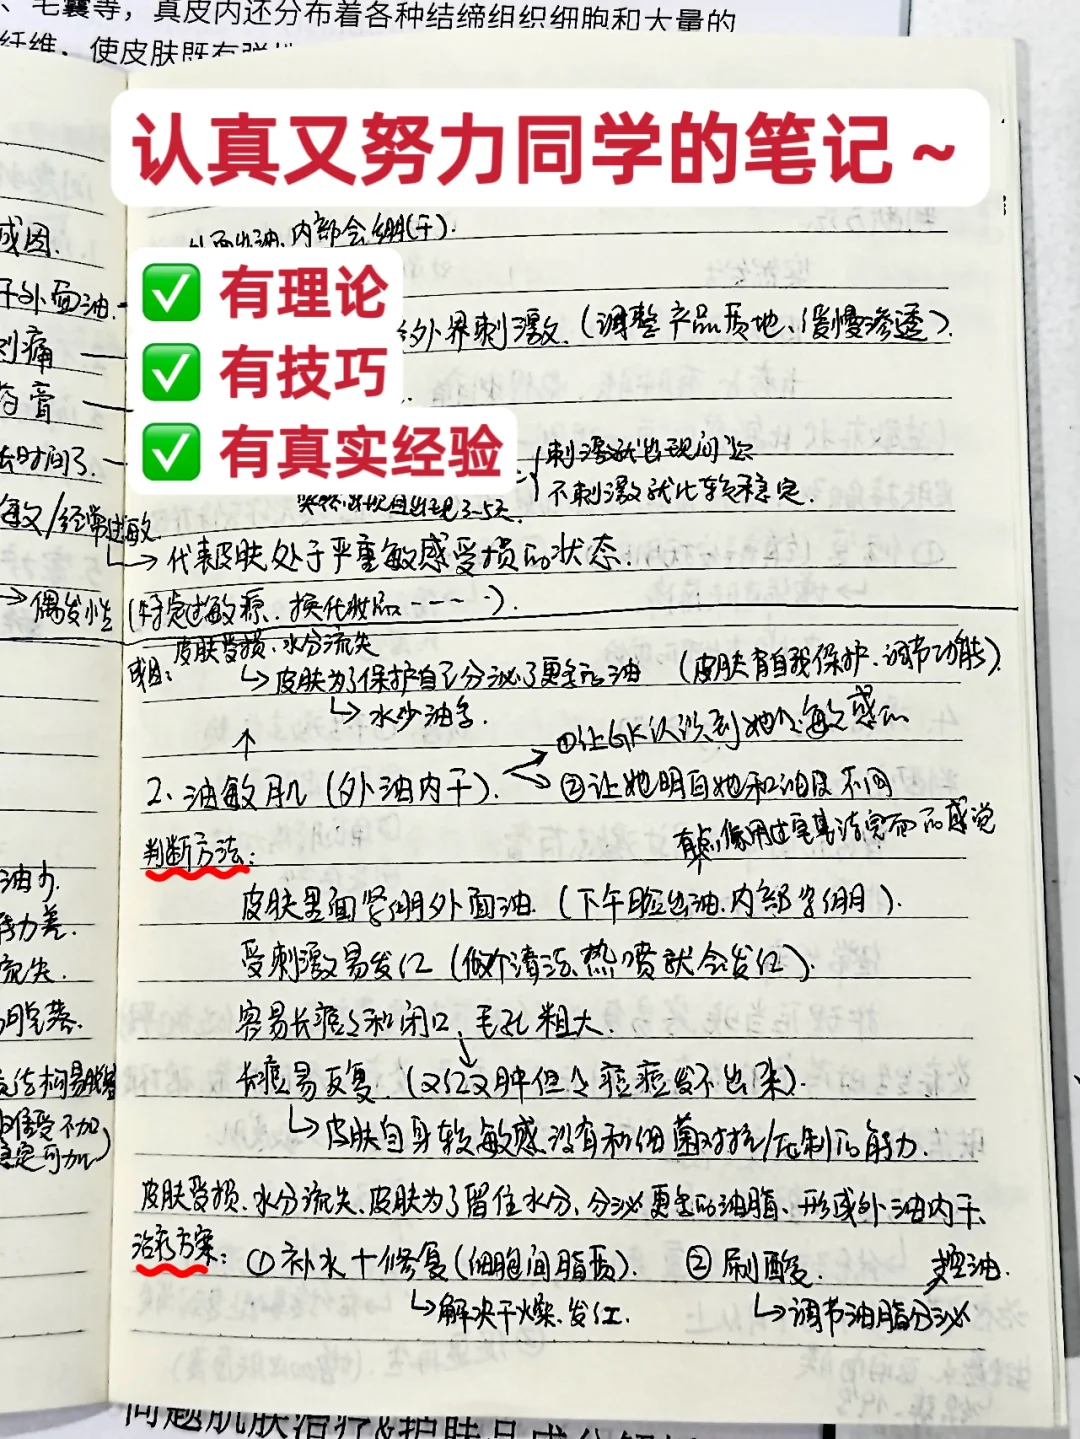 、毛囊等，真皮内还分布着各种结缔组织细胞和大量的
纤维，使皮肤既有弹
认真又努力同学的笔记～
成因.
外面出油.内部会绷(干).
✅ 有理论
干外面油.
外界刺激.(调整产品质地、缓慢渗透).
刺痛
✅ 有技巧
药膏
✅ 有真实经验
长时间了.
刺激就出现问题
不刺激就比较稳定.
3-5天
敏/经常过敏.
→代表皮肤处于严重敏感受损的状态.
→偶发性(特定过敏源、换化妆品----).
皮肤受损.水分流失
成因:
↳皮肤为了保护自己分泌了更多的油 (皮肤有自我保护.调节功能).
↳水少油多.
①让GK认识到她的敏感肌
2.油敏肌(外油内干).
②让她明白她和油皮不同
有点像用过皂基洁完面的感觉
判断方法:
油少.
皮肤里面紧绷外面油.(下午脸出油.内部紧绷).
力差.
受刺激易发红(做个清洁、热喷就会发红).
流失.
容易长痘痘和闭口、毛孔粗大.
明显薄.
长痘易反复.(又红又肿但痘痘发不出来).
↳皮肤自身较敏感没有和细菌对抗/压制的能力.
皮肤受损.水分流失、皮肤为了留住水分、分泌更多的油脂、形成外油内干.
治疗方案: ①补水+修复(细胞间脂质). ②刷酸. 控油.
↳解决干燥、发红. ↳调节油脂分泌
问题肌肤治疗&护肤品成分解